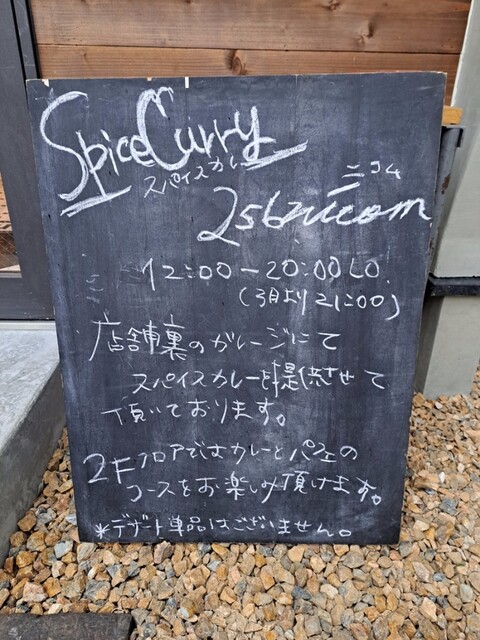 Spice Curry
スパイスカレー
ニコム
256nicom
12:00-20:00LO
(3月より21:00)
店舗裏のガレージにて
スパイスカレーを提供させて
頂いております。
2Fフロアではカレーとパフェの
コースをお楽しみ頂けます。
*デザート単品はございません。